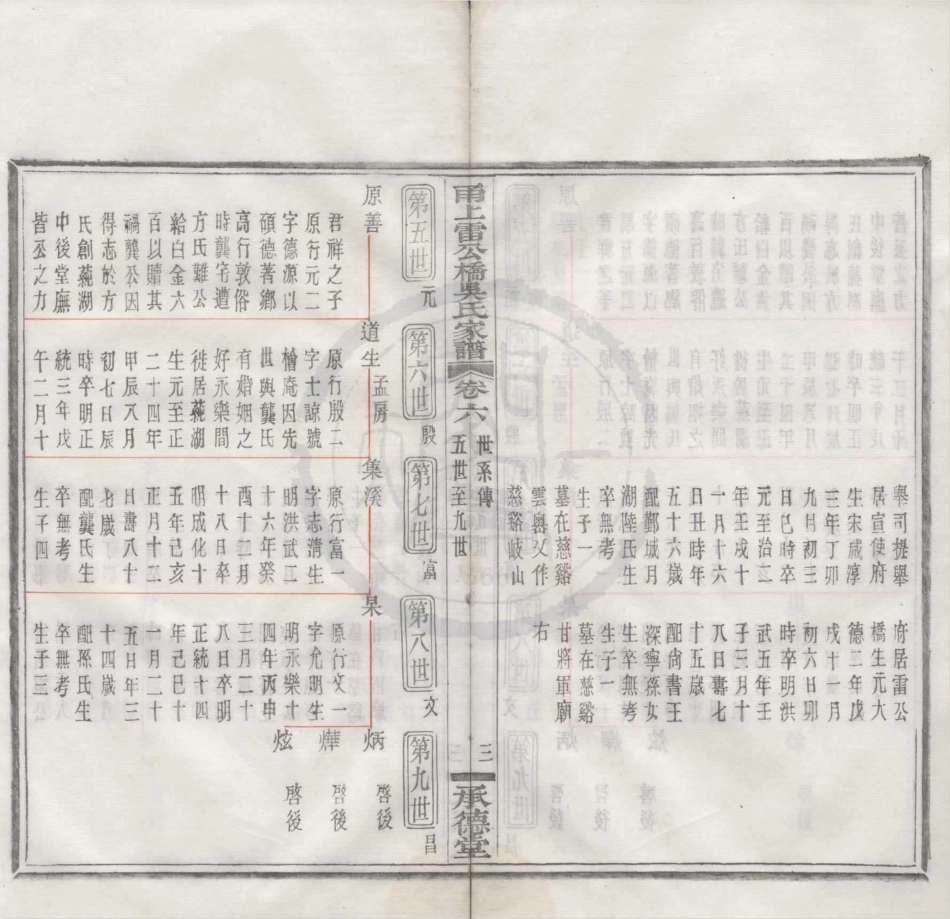 舉司提舉
居宣使府
生宋咸淳
三年丁卯
九月初三
日己時卒
元至治二
年壬戌十
一月十六
日丑時年
五十六歲
配鄞城月
湖陸氏生
卒無考
生子一
墓在慈谿
雲輿乂作
慈谿岐山
府居雷公
橋生元大
德二年戊
戌十月
初六日卯
時卒明洪
武五年壬
子三月十
八日壽七
十五歲
配尚書王
深寧孫女
生卒無考
生子一
墓在慈谿
廿將軍廟
右
甬上雷公橋吳氏家譜
卷六
世系傳
五世至九世
三
承德堂
第五世
元
第六世
殷
第七世
富
第八世
文
第九世
昌
原善
君祥之子
原行元二
字德源以
碩德著鄉
高行敦俗
時龔宅遭
方氏難公
給白金六
百以贖其
禍龔公因
得志於方
氏創蕪湖
中後堂廡
皆公之力
道生
孟房
原行殷二
字士諒號
檜庵因先
世與龔氏
有婚姻之
好永樂間
徙居蕪湖
生元至正
二十四年
甲辰八月
初七日辰
時卒明正
統三年戊
午二月十
集溪
原行富一
字志清生
明洪武二
十六年癸
酉十二月
十八日卒
明成化十
五年己亥
正月十二
日壽八十
七歲
配龔氏生
卒無考
生子四
杲
原行文一
字允明生
明永樂十
四年丙申
三月二十
八日卒明
正統十四
年己巳十
一月二十
五日年三
十四歲
配孫氏生
卒無考
生子三
炳
啓後
燁
啓後
炫
啓後